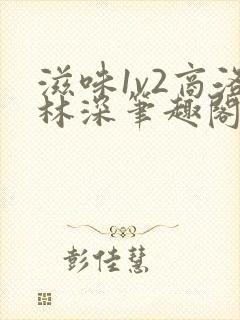 滋味1v2高洛
林深笔趣阁
彭佳慧